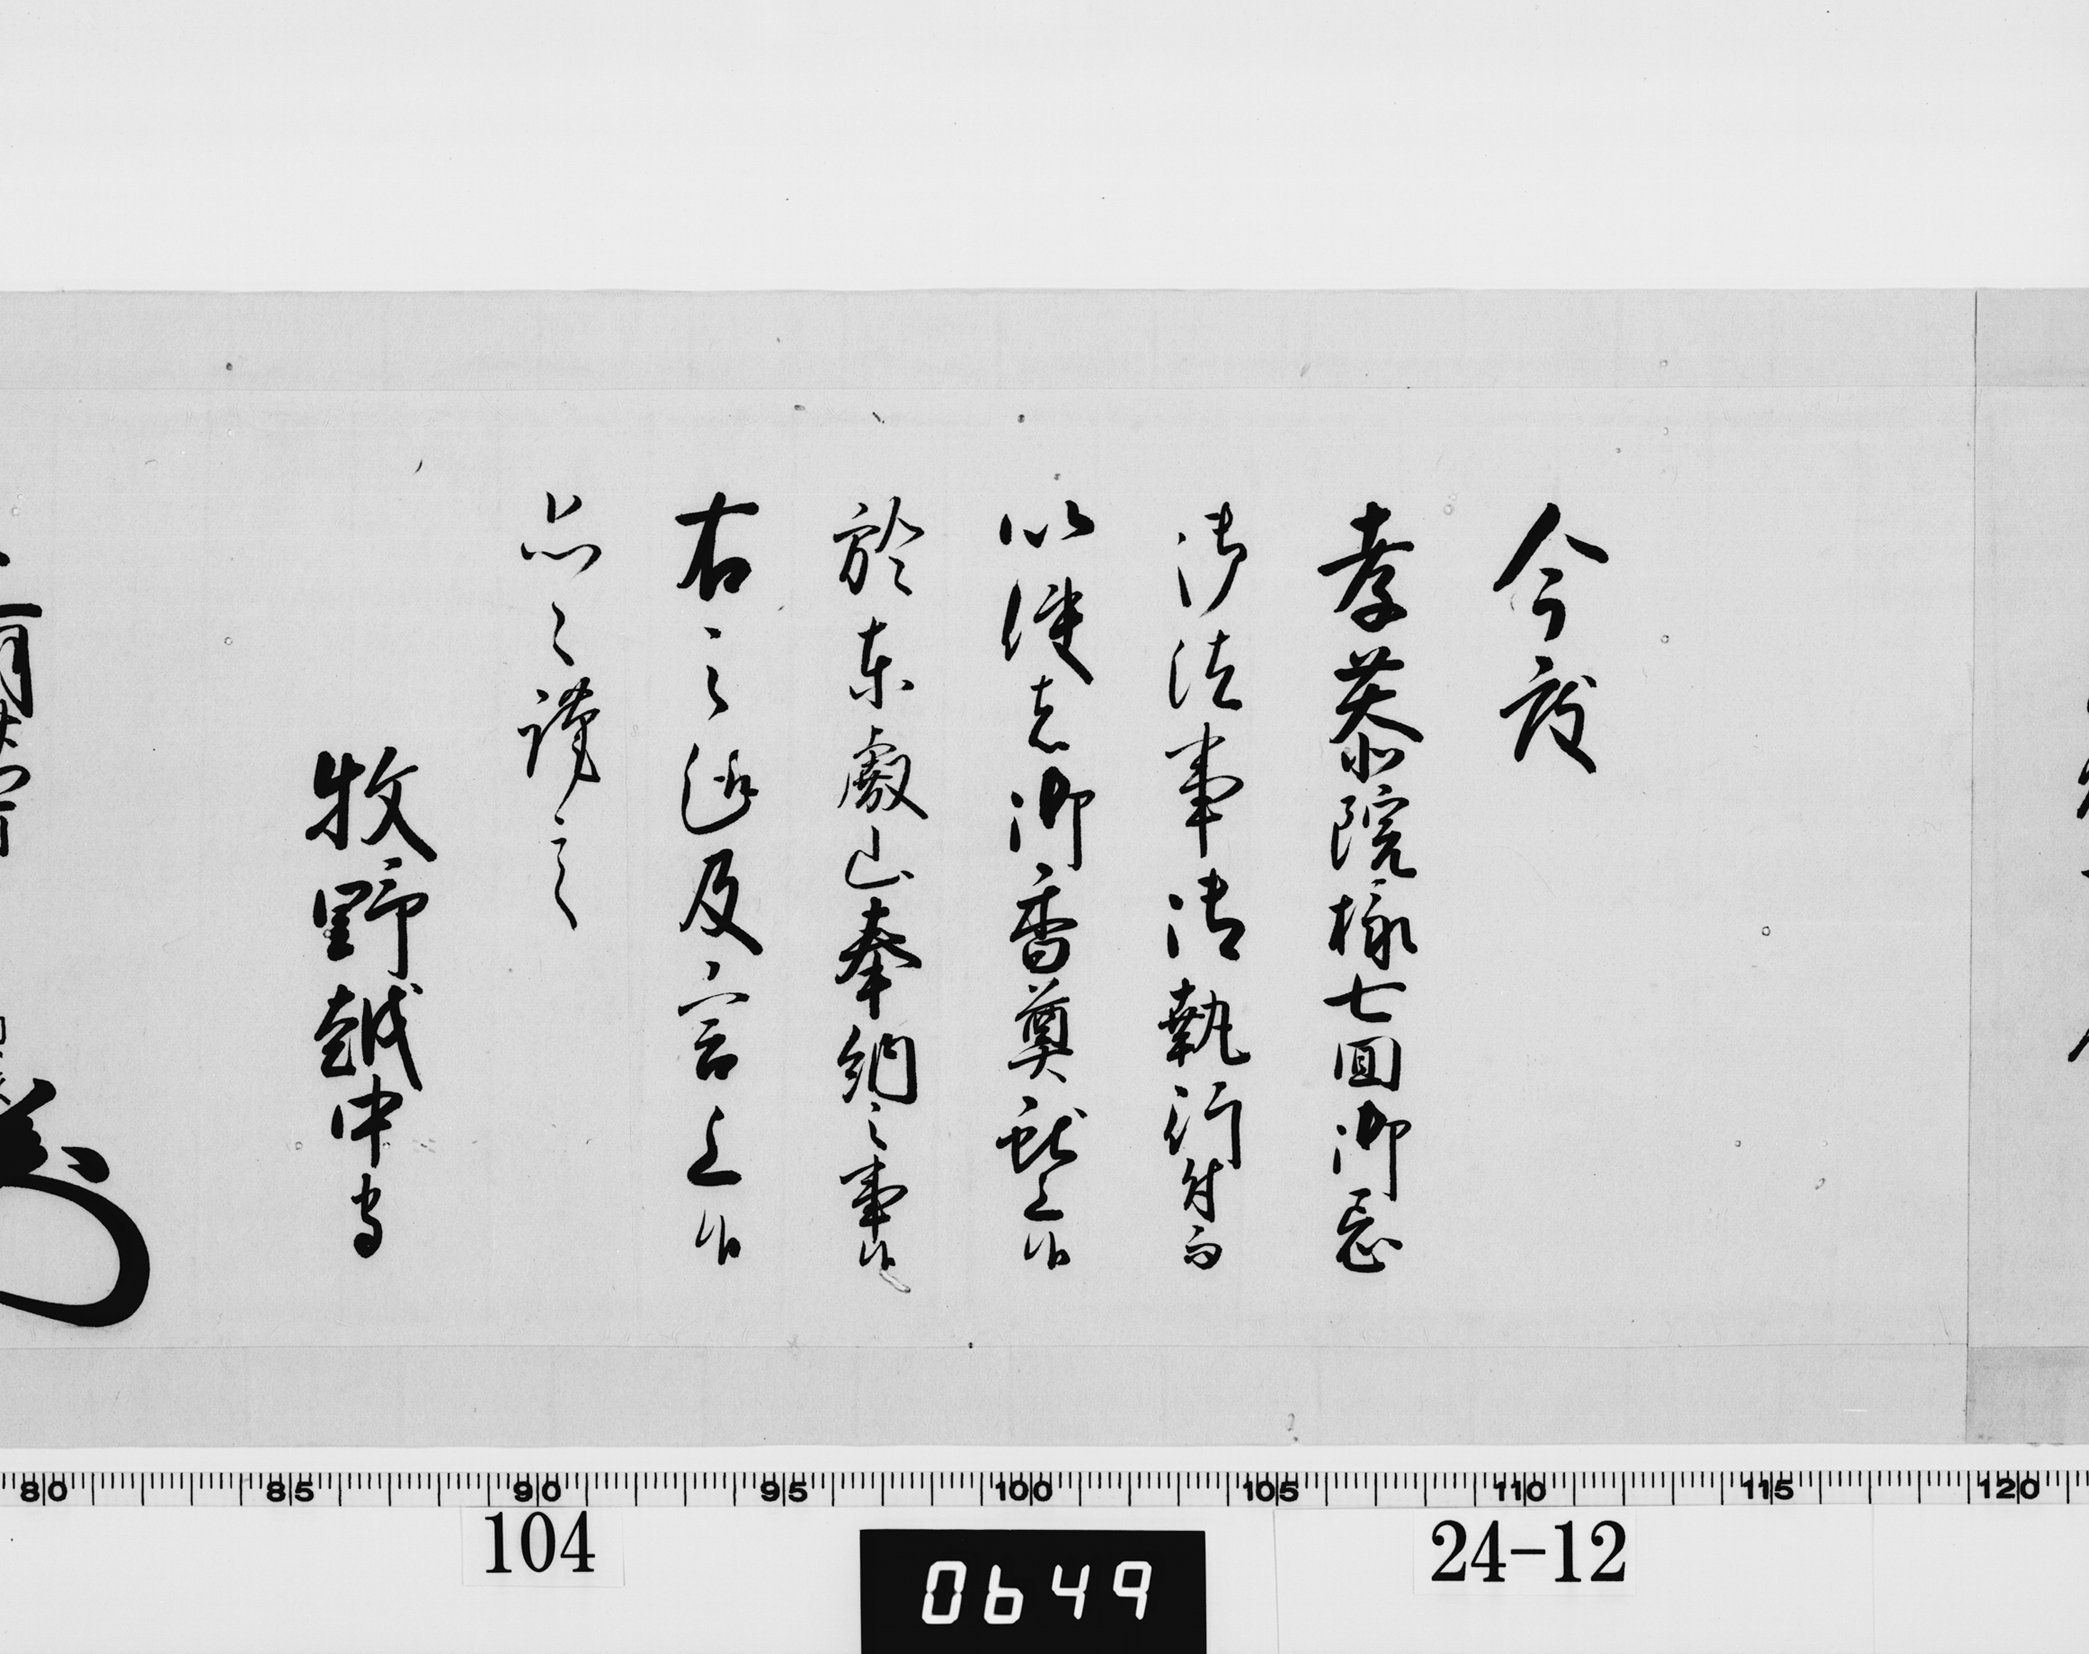 今度
孝恭院様七回御忌
御法事御執行付而
以使者御香奠献上候
於東叡山奉納之事候
右之趣及言上候
恐々謹言
牧野越中守
80 85 90 95 100 105 110 115 120
104
0649
24-12